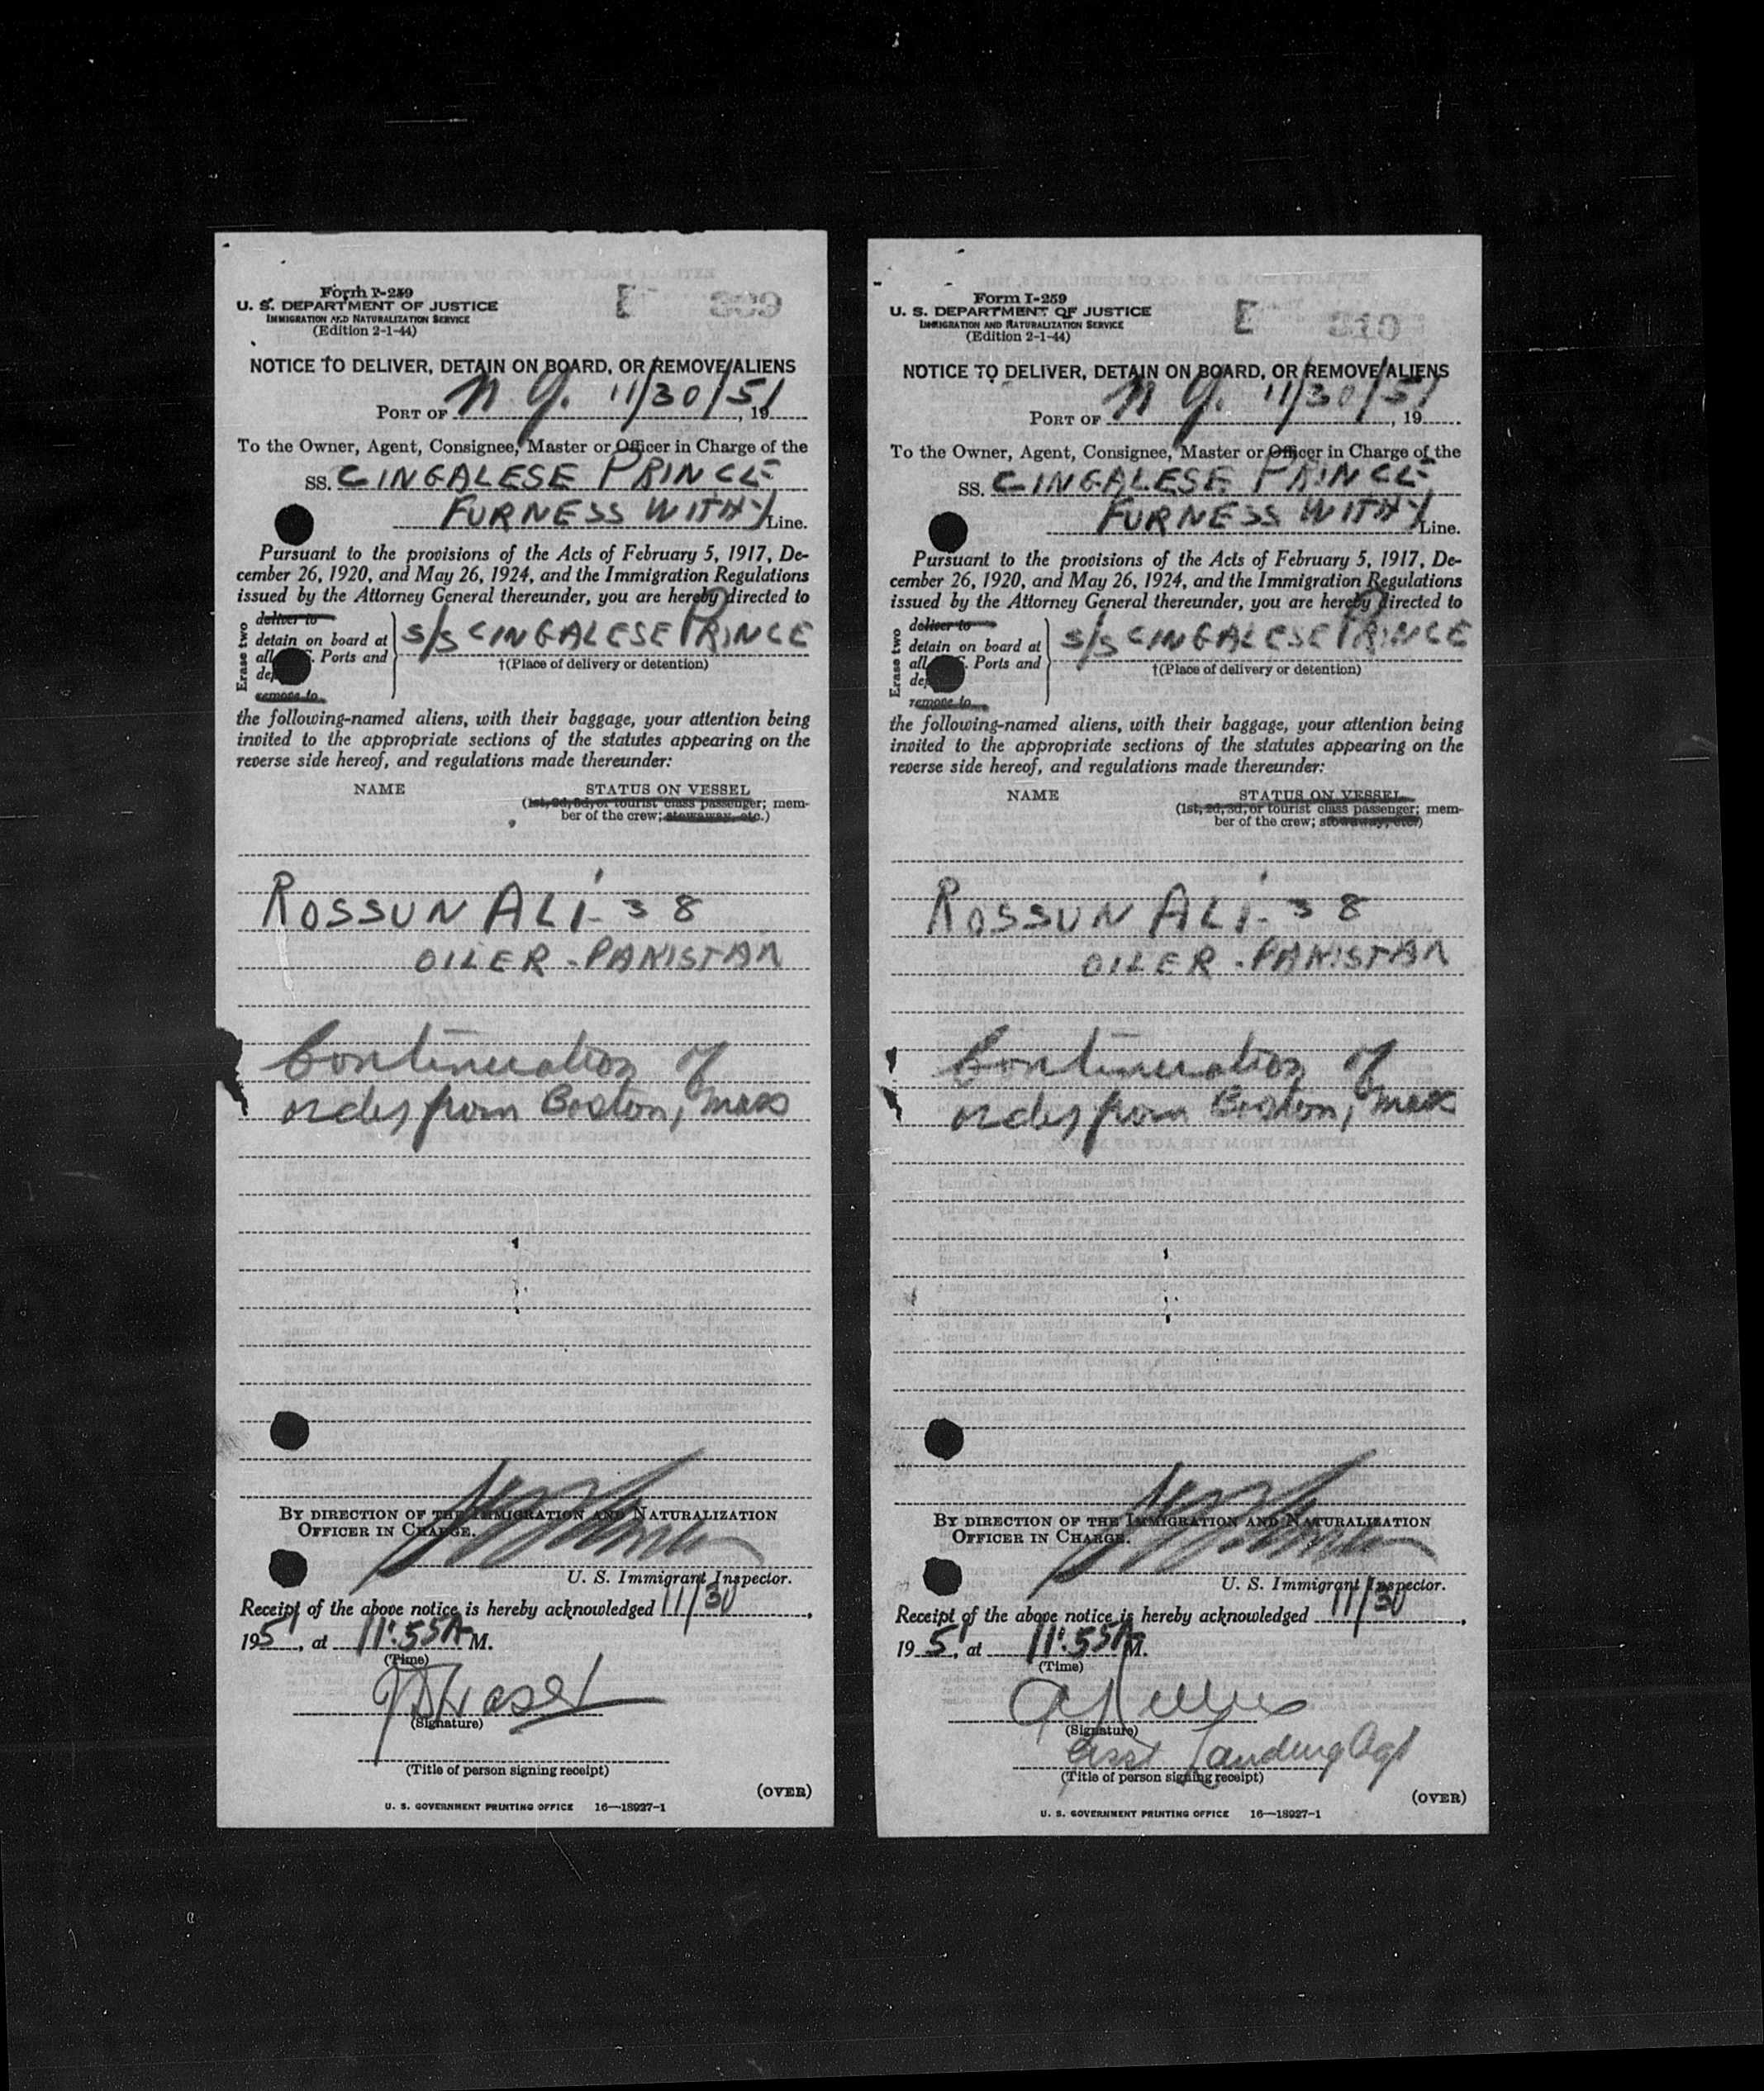 Form I-259
U. S. DEPARTMENT OF JUSTICE
IMMIGRATION AND NATURALIZATION SERVICE
(Edition 2-1-44)
E
NOTICE TO DELIVER, DETAIN ON BOARD, OR REMOVE ALIENS
PORT OF N.Y. 11/30/51, 19
To the Owner, Agent, Consignee, Master or Officer in Charge of the
SS. CINGALESE PRINCE
FURNESS WITHY Line.
Pursuant to the provisions of the Acts of February 5, 1917, De-
cember 26, 1920, and May 26, 1924, and the Immigration Regulations
issued by the Attorney General thereunder, you are hereby directed to
Erase two
deliver to
detain on board at
all Ports and
remove to
s/s CINGALESE PRINCE
†(Place of delivery or detention)
the following-named aliens, with their baggage, your attention being
invited to the appropriate sections of the statutes appearing on the
reverse side hereof, and regulations made thereunder:
NAME STATUS ON VESSEL
(1st, 2d, 3d, or tourist class passenger; mem-
ber of the crew; stowaway, etc.)
ROSSUN ALI - 38
OILER - PAKISTAN
Continuation of
orders from Boston, Mass
BY DIRECTION OF THE IMMIGRATION AND NATURALIZATION
OFFICER IN CHARGE.
U. S. Immigrant Inspector.
Receipt of the above notice is hereby acknowledged 11/30,
1951, at 11:55 A M.
(Time)
(Signature)
(Title of person signing receipt)
(OVER)
U. S. GOVERNMENT PRINTING OFFICE 16—18927-1
Form I-259
U. S. DEPARTMENT OF JUSTICE
IMMIGRATION AND NATURALIZATION SERVICE
(Edition 2-1-44)
E
NOTICE TO DELIVER, DETAIN ON BOARD, OR REMOVE ALIENS
PORT OF N.Y. 11/30/51, 19
To the Owner, Agent, Consignee, Master or Officer in Charge of the
SS. CINGALESE PRINCE
FURNESS WITHY Line.
Pursuant to the provisions of the Acts of February 5, 1917, De-
cember 26, 1920, and May 26, 1924, and the Immigration Regulations
issued by the Attorney General thereunder, you are hereby directed to
Erase two
deliver to
detain on board at
all Ports and
remove to
s/s CINGALESE PRINCE
†(Place of delivery or detention)
the following-named aliens, with their baggage, your attention being
invited to the appropriate sections of the statutes appearing on the
reverse side hereof, and regulations made thereunder:
NAME STATUS ON VESSEL
(1st, 2d, 3d, or tourist class passenger; mem-
ber of the crew; stowaway, etc.)
ROSSUN ALI - 38
OILER - PAKISTAN
Continuation of
orders from Boston, Mass
BY DIRECTION OF THE IMMIGRATION AND NATURALIZATION
OFFICER IN CHARGE.
U. S. Immigrant Inspector.
Receipt of the above notice is hereby acknowledged 11/30,
1951, at 11:55 A M.
(Time)
(Signature)
Asst Landing Agt
(Title of person signing receipt)
(OVER)
U. S. GOVERNMENT PRINTING OFFICE 16—18927-1